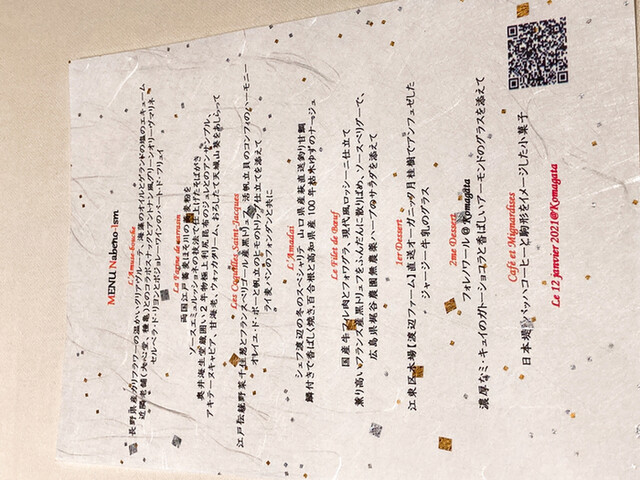 MENU Nabeno-Ism
L'Amuse-bouche
長野県産カリフラワーの温かいのリヴァルーテ、海藻のオイルとゲランドの塩のエキューム
近隣老舗(大心堂、種亀)とのコラボスナックとアントナン風グリーンオリーヴマリネ
セルベラ・ド・リヨンとボジョレーワインのパート・ド・フリュイ
La Farine de sarrasin
両国江戸蕎麦ほそ川の蕎麦粉を
ソースエミュルッショネの技法で仕上げたそばがき
奥井海生堂蔵囲い2年物極上利尻昆布のジュレとのアンサンブル、
アキテーヌキャビア、甘海老、ウォッカクリーム、おろしたて天城山葵をあしらって
Les Coquilles Saint-Jacques
江戸伝統野菜千住葱とフランスペリゴール産黒トリュフ、活帆立貝のコンフィのハーモニー
オレイユ・ド・ポーと帆立のヒモのドリップ仕立てを添えて
ライ麦パンのフォンダンと共に
L'Amadai
シェフ渡辺の冬のスペシャリテ 山口県産萩直送釣り甘鯛
鱗付きで香ばしく焼き,百合根と高知県産100年枯木ゆずのナージュ
Le Filet de Bœuf
国産牛フィレ肉とフォワグラ、現代風ロッシーニ仕立て
薫り高いフランス産黒トリュフをふんだんに散りばめ、ソースペリグーで、
広島県梶谷農園無農薬ハーブのサラダを添えて
1er Dessert
江東区木場【渡辺ファーム】直送オーガニック月桂樹でアンフュゼした
ジャージー牛乳のグラス
2me Dessert
フォレノワール@Komagata
濃厚なミ・キュイのガトーショコラと香ばしいアーモンドのグラスを添えて
Café et Mignardises
日本堤バッハコーヒーと駒形をイメージした小菓子
Le 12 janvier 2021@Komagata